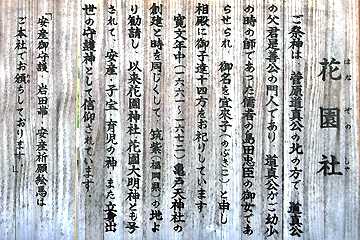 花園社
はなぞのしゃ
ご祭神は、菅原道真公の北の方で、道真公
の父君是善公の門人であり、道真公がご幼少
の時の師であった儒者の島田忠臣の御女であ
らせられ、御名を宣来子(のぶきこ)と申し
相殿に御子達十四方をお祀りしています。
寛文年中(一六六一~六七二)亀戸天神社の
創建と時を同じくして、筑紫(福岡県)の地よ
り勧請し、以来花園神社、花園大明神とも号
されて、安産、子宝、育児の神、また立身出
世の守護神として信仰されています。
「安産御守護、岩田帯、安産祈願絵馬は
ご本社でお頒ちしております。」